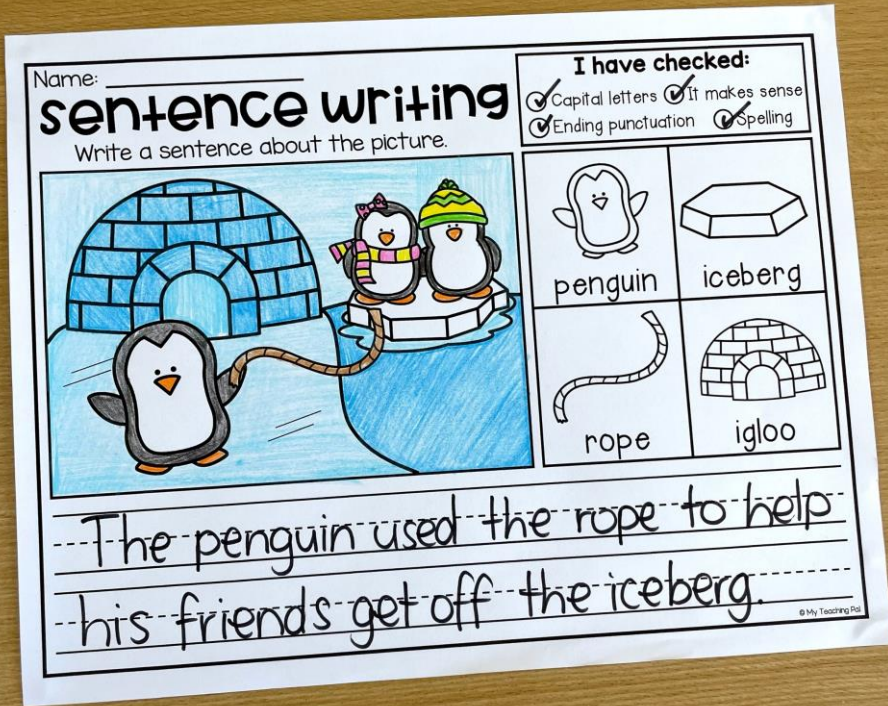 Name:
sentence writing
Write a sentence about the picture.
I have checked:
Capital letters It makes sense
Ending punctuation Spelling
penguin iceberg
rope igloo
The penguin used the rope to help
his friends get off the iceberg.
© My Teaching Pal